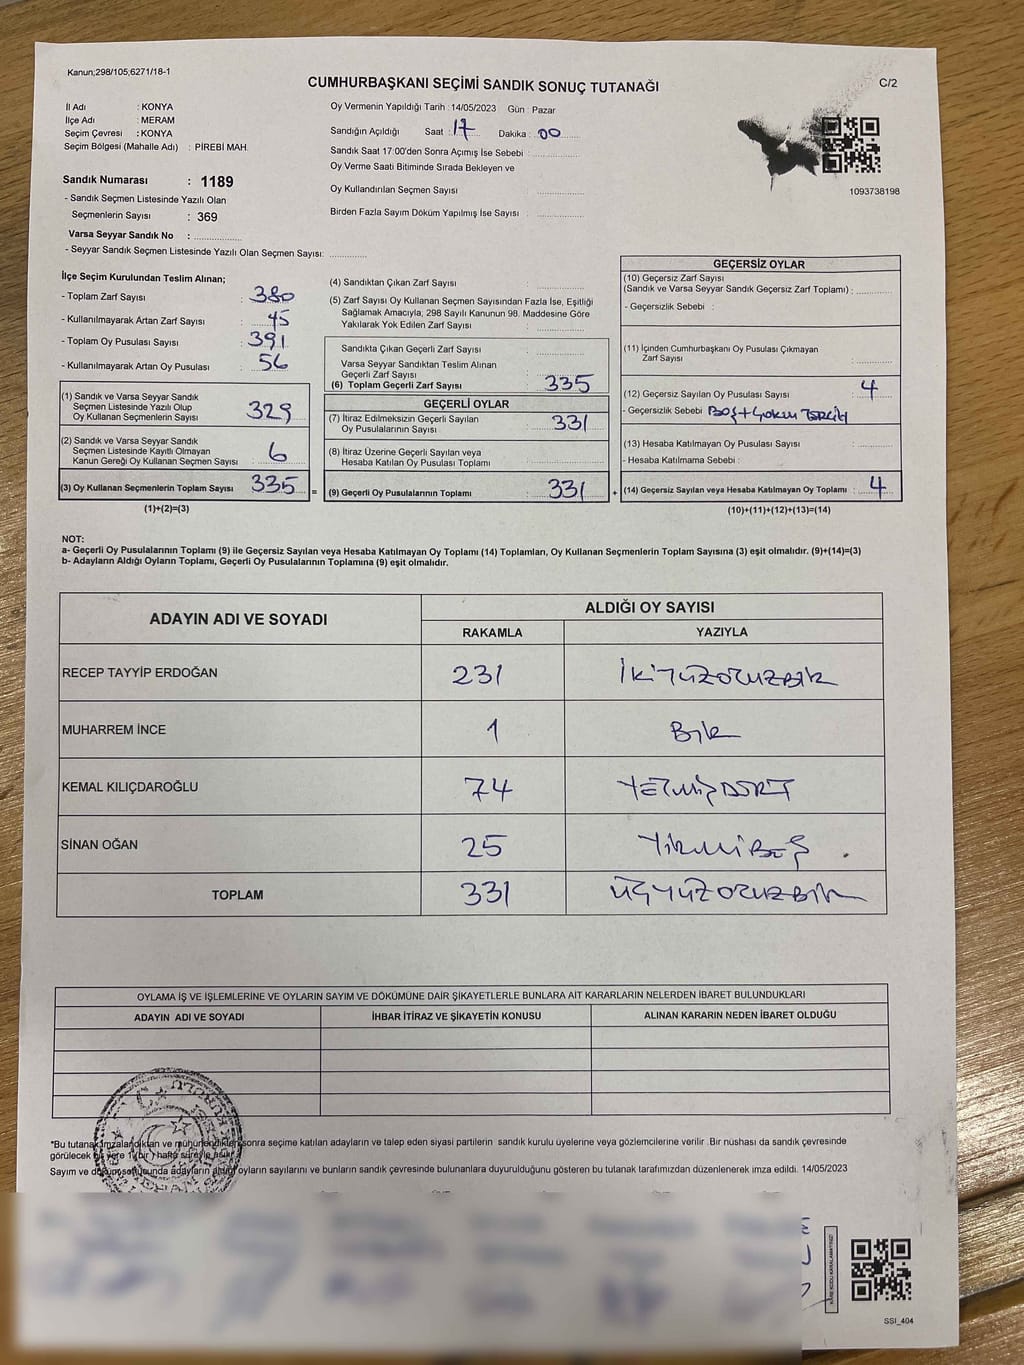 Kanun;298/105;6271/18-1
CUMHURBAŞKANI SEÇİMİ SANDIK SONUÇ TUTANAĞI
C/2
İl Adı : KONYA
İlçe Adı : MERAM
Seçim Çevresi : KONYA
Seçim Bölgesi (Mahalle Adı) : PİREBİ MAH.
Sandık Numarası : 1189
- Sandık Seçmen Listesinde Yazılı Olan
Seçmenlerin Sayısı : 369
Varsa Seyyar Sandık No :
- Seyyar Sandık Seçmen Listesinde Yazılı Olan Seçmen Sayısı:
Oy Vermenin Yapıldığı Tarih : 14/05/2023 Gün : Pazar
Sandığın Açıldığı Saat : 17 Dakika : 00
Sandık Saat 17:00'den Sonra Açımış İse Sebebi :
Oy Verme Saati Bitiminde Sırada Bekleyen ve
Oy Kullandırılan Seçmen Sayısı
Birden Fazla Sayım Döküm Yapılmış İse Sayısı :
1093738198
İlçe Seçim Kurulundan Teslim Alınan;
- Toplam Zarf Sayısı : 380
- Kullanılmayarak Artan Zarf Sayısı : 45
- Toplam Oy Pusulası Sayısı : 391
- Kullanılmayarak Artan Oy Pusulası : 56
(1) Sandık ve Varsa Seyyar Sandık
Seçmen Listesinde Yazılı Olup
Oy Kullanan Seçmenlerin Sayısı : 329
(2) Sandık ve Varsa Seyyar Sandık
Seçmen Listesinde Kayıtlı Olmayan
Kanun Gereği Oy Kullanan Seçmen Sayısı : 6
(3) Oy Kullanan Seçmenlerin Toplam Sayısı : 335 =
(1)+(2)=(3)
(4) Sandıktan Çıkan Zarf Sayısı :
(5) Zarf Sayısı Oy Kullanan Seçmen Sayısından Fazla İse, Eşitliği
Sağlamak Amacıyla; 298 Sayılı Kanunun 98. Maddesine Göre
Yakılarak Yok Edilen Zarf Sayısı :
Sandıkta Çıkan Geçerli Zarf Sayısı :
Varsa Seyyar Sandıktan Teslim Alınan
Geçerli Zarf Sayısı :
(6) Toplam Geçerli Zarf Sayısı : 335
GEÇERLİ OYLAR
(7) İtiraz Edilmeksizin Geçerli Sayılan
Oy Pusulalarının Sayısı : 331
(8) İtiraz Üzerine Geçerli Sayılan veya
Hesaba Katılan Oy Pusulası Toplamı :
(9) Geçerli Oy Pusulalarının Toplamı : 331 +
GEÇERSİZ OYLAR
(10) Geçersiz Zarf Sayısı
(Sandık ve Varsa Seyyar Sandık Geçersiz Zarf Toplamı) :
- Geçersizlik Sebebi :
(11) İçinden Cumhurbaşkanı Oy Pusulası Çıkmayan
Zarf Sayısı :
(12) Geçersiz Sayılan Oy Pusulası Sayısı : 4
- Geçersizlik Sebebi : Boş+Çoklu Tercih
(13) Hesaba Katılmayan Oy Pusulası Sayısı :
- Hesaba Katılmama Sebebi :
(14) Geçersiz Sayılan veya Hesaba Katılmayan Oy Toplamı : 4
(10)+(11)+(12)+(13)=(14)
NOT:
a- Geçerli Oy Pusulalarının Toplamı (9) ile Geçersiz Sayılan veya Hesaba Katılmayan Oy Toplamı (14) Toplamları, Oy Kullanan Seçmenlerin Toplam Sayısına (3) eşit olmalıdır. (9)+(14)=(3)
b- Adayların Aldığı Oyların Toplamı, Geçerli Oy Pusulalarının Toplamına (9) eşit olmalıdır.
ADAYIN ADI VE SOYADI
ALDIĞI OY SAYISI
RAKAMLA YAZIYLA
RECEP TAYYİP ERDOĞAN 231 İKİYÜZOTUZBİR
MUHARREM İNCE 1 BİR
KEMAL KILIÇDAROĞLU 74 YETMİŞDÖRT
SİNAN OĞAN 25 YİRMİBEŞ
TOPLAM 331 ÜÇYÜZOTUZBİR
OYLAMA İŞ VE İŞLEMLERİNE VE OYLARIN SAYIM VE DÖKÜMÜNE DAİR ŞİKAYETLERLE BUNLARA AİT KARARLARIN NELERDEN İBARET BULUNDUKLARI
ADAYIN ADI VE SOYADI İHBAR İTİRAZ VE ŞİKAYETİN KONUSU ALINAN KARARIN NEDEN İBARET OLDUĞU
*Bu tutanak imzalandıktan ve mühürlendikten sonra seçime katılan adayların ve talep eden siyasi partilerin sandık kurulu üyelerine veya gözlemcilerine verilir .Bir nüshası da sandık çevresinde
görülecek bir yere 1 (bir) hafta süreyle asılır.
Sayım ve döküm sonucunda adayların aldığı oyların sayılarını ve bunların sandık çevresinde bulunanlara duyurulduğunu gösteren bu tutanak tarafımızdan düzenlenerek imza edildi. 14/05/2023
KARE KODU KARALAMAYINIZ!
SSI_404